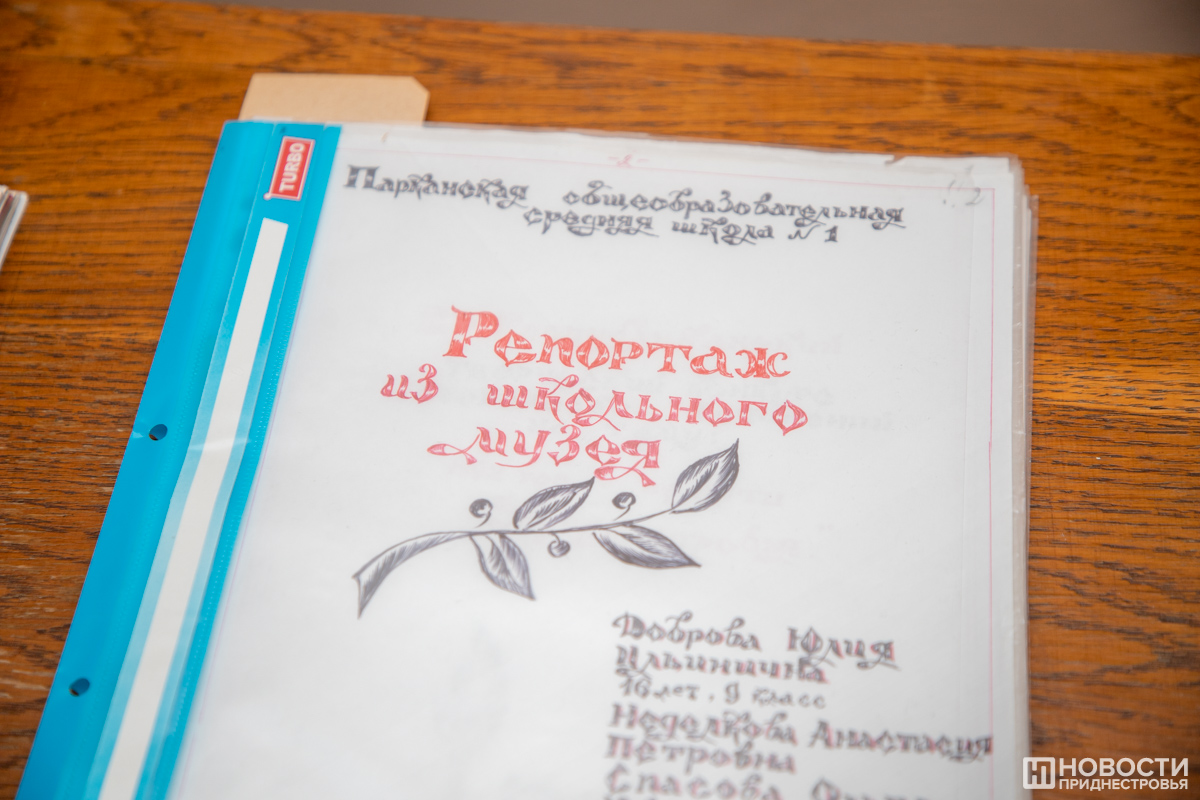 TURBO
Парканская общеобразовательная
средняя школа № 1
Репортаж
из школьного
музея
Доброва Юлия
Ильинична
16 лет, 9 класс
Неделкова Анастасия
Петровна
Спасова
НОВОСТИ
ПРИДНЕСТРОВЬЯ